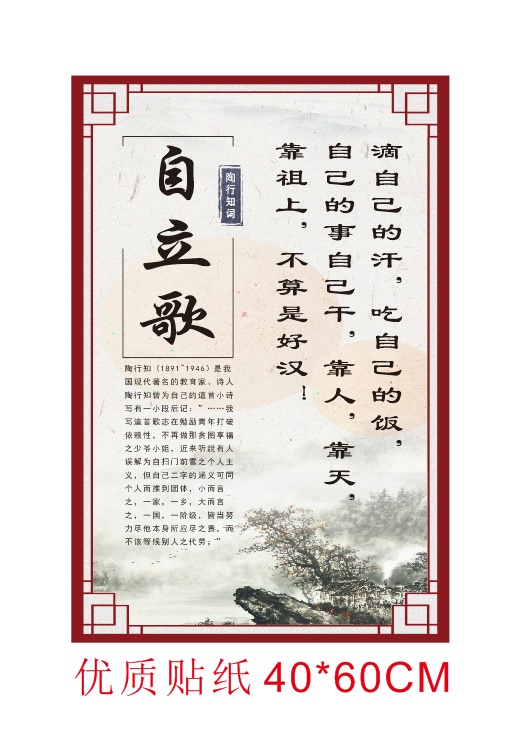 自立歌
陶行知词
滴自己的汗，吃自己的饭，
自己的事自己干，靠人，靠天，
靠祖上，不算是好汉！
陶行知（1891~1946）是我
国现代著名的教育家、诗人
陶行知曾为自己的這首小诗
写有一小段后记：“……我
写這首歌志在勉励青年打破
依赖性，不再做那贪图享福
之少爷小姐，近来听説有人
误解为自扫门前雪之个人主
义，但自己二字的涵义可同
个人而推到团体，小而言
之，一家，一乡，大而言
之，一国，一阶级，皆当努
力尽他本身所应尽之责，而
不该等候别人之代劳；”
优质贴纸 40*60CM